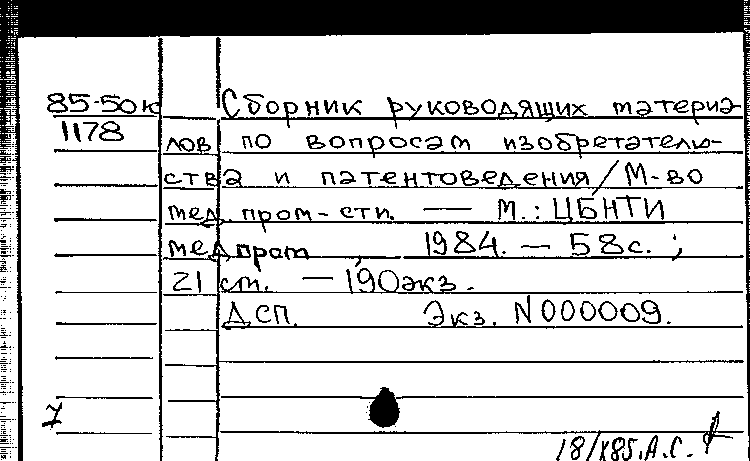 85-50к Сборник руководящих материа-
1178 лов по вопросам изобретатель-
ства и патентоведения/М-во
мед. пром-сти. — М.: ЦБНТИ
медпром, 1984. — 58с. ;
21 см. — 190экз.
ДСП. Экз. N000009.
7
18/X85.А.С.